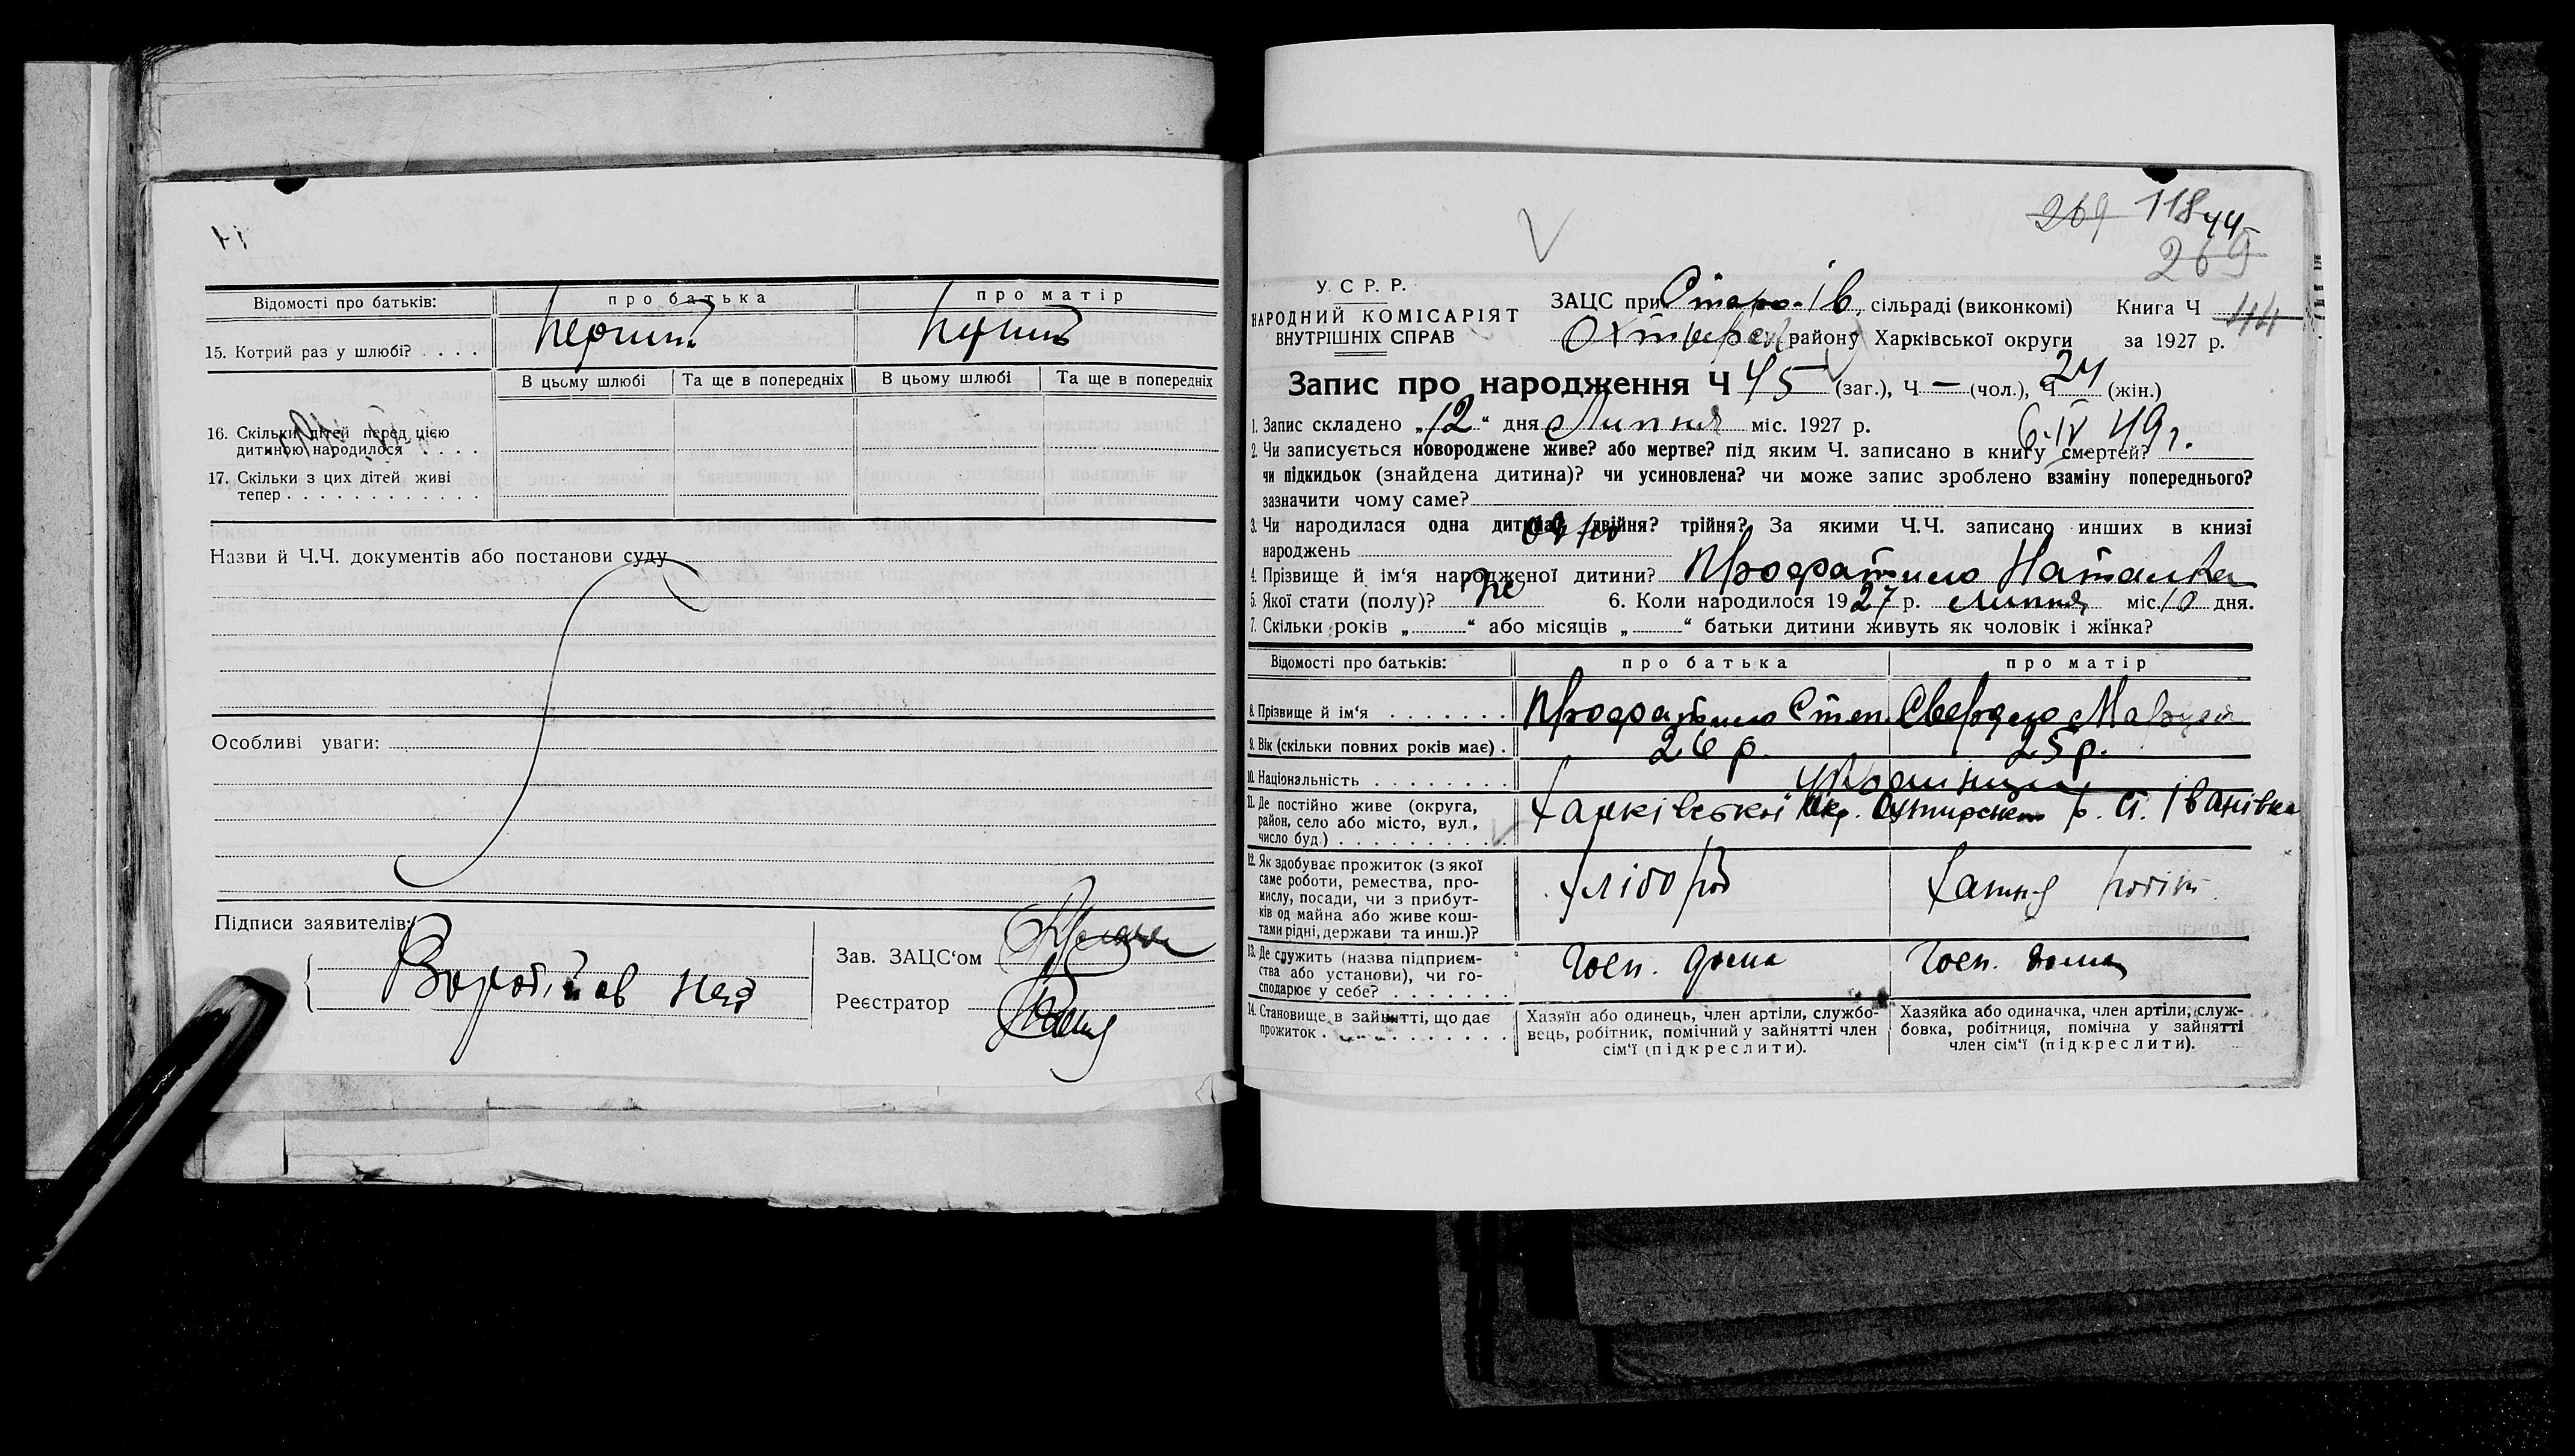 Відомості про батьків: про батька про матір
15. Котрий раз у шлюбі? . . . .
В цьому шлюбі Та ще в попередніх В цьому шлюбі Та ще в попередніх
16. Скільки дітей перед цією
дитиною народилося . . . .
17. Скільки з цих дітей живі
тепер . . . . . . . . . . . .
Назви й Ч.Ч. документів або постанови суду
Особливі уваги:
Підписи заявителів:
Зав. ЗАЦС‘ом
Реєстратор
269 118 44
269
У. С Р. Р.
НАРОДНИЙ КОМІСАРІЯТ
ВНУТРІШНІХ СПРАВ
ЗАЦС при Старо-Ів. сільраді (виконкомі) Книга Ч 44
району Харківської округи за 1927 р.
Запис про народження Ч 45 (заг.), Ч — (чол.), Ч 24 (жін.)
1. Запис складено „12“ дня Липня міс. 1927 р.
6-IV 49 г.
2. Чи записується новороджене живе? або мертве? під яким Ч. записано в книгу смертей?
чи підкидьок (знайдена дитина)? чи усиновлена? чи може запис зроблено взаміну попереднього?
зазначити чому саме?
3. Чи народилася одна дитина? двійня? трійня? За якими Ч.Ч. записано инших в книзі
народжень
4. Прізвище й ім‘я народженої дитини? Наталка
5. Якої стати (полу)? же 6. Коли народилося 1927 р. липня міс. 10 дня.
7. Скільки років „ “ або місяців „ “ батьки дитини живуть як чоловік і жінка?
Відомості про батьків: про батька про матір
8. Прізвище й ім‘я . . . . . . .
9. Вік (скільки повних років має) . 26 р. 25 р.
10. Національність . . . . . . . . українці
11. Де постійно живе (округа,
район, село або місто, вул.,
число буд.) . . . . . . . . . .
Харківської окр. Охтирськ р. С. Іванівка
12. Як здобуває прожиток (з якої
саме роботи, ремества, про-
мислу, посади, чи з прибут-
ків од майна або живе кош-
тами рідні, держави та инш.)?
хлібороб
13. Де служить (назва підприєм-
ства або установи), чи го-
сподарює у себе? . . . . . . .
Госп. дома Госп. дома
14. Становище в зайнятті, що дає
прожиток . . . . . . . . . . .
Хазяїн або одинець, член артіли, службо-
вець, робітник, помічний у зайнятті член
сім‘ї (підкреслити).
Хазяйка або одиначка, член артіли, служ-
бовка, робітниця, помічна у зайнятті
член сім‘ї (підкреслити).